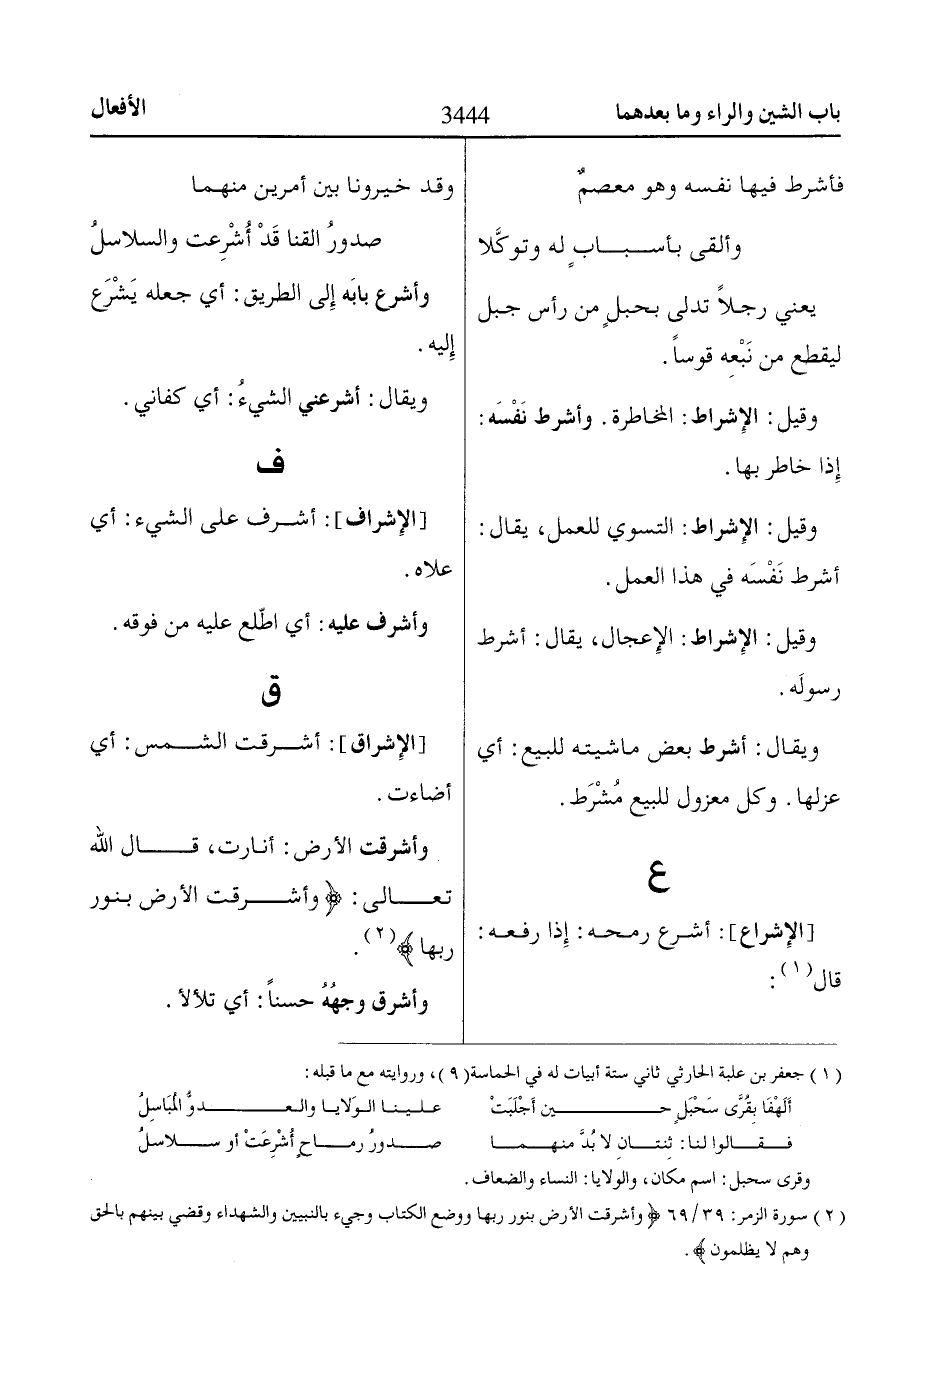 باب الشين والراء وما بعدهما 3444 الأفعال
فأشرط فيها نفسه وهو معصمٌ
وألقى بأسبابٍ له وتوكَّلا
يعني رجلاً تدلى بحبلٍ من رأس جبل
ليقطع من نَبْعِه قوساً.
وقيل: الإشراط: المخاطرة. وأشرط نَفْسَه:
إذا خاطر بها.
وقيل: الإشراط: التسوي للعمل، يقال:
أشرط نَفْسَه في هذا العمل.
وقيل: الإشراط: الإعجال، يقال: أشرط
رسولَه.
ويقال: أشرط بعض ماشيته للبيع: أي
عزلها. وكل معزول للبيع مُشْرَط.
ع
[الإشراع]: أشرع رمحه: إذا رفعه:
قال(١):
وقد خيرونا بين أمرين منهما
صدورُ القنا قَدْ أُشْرِعت والسلاسلُ
وأشرع بابَه إلى الطريق: أي جعله يَشْرَع
إليه.
ويقال: أشرعني الشيءُ: أي كفاني.
ف
[الإشراف]: أشرف على الشيء: أي
علاه.
وأشرف عليه: أي اطّلع عليه من فوقه.
ق
[الإشراق]: أشرقت الشمس: أي
أضاءت.
وأشرقت الأرض: أنارت، قال الله
تعالى: ﴿ وأشرقت الأرض بنور
ربها ﴾(٢).
وأشرق وجهُهُ حسناً: أي تلألأ.
(١) جعفر بن علبة الحارثي ثاني ستة أبيات له في الحماسة(٩)، وروايته مع ما قبله:
ألَهْفَا بِقُرَّى سَحْبَلٍ حين أجْلَبَتْ علينا الوَلايا والعدوُّ المُبَاسِلُ
فقالوا لنا: ثنتان لا بُدَّ منهما صدورُ رماحٍ أُشْرِعَتْ أو سلاسلُ
وقرى سحبل: اسم مكان، والولايا: النساء والضعاف.
(٢) سورة الزمر: ٣٩/ ٦٩ ﴿ وأشرقت الأرض بنور ربها ووضع الكتاب وجيء بالنبيين والشهداء وقضي بينهم بالحق
وهم لا يظلمون ﴾.